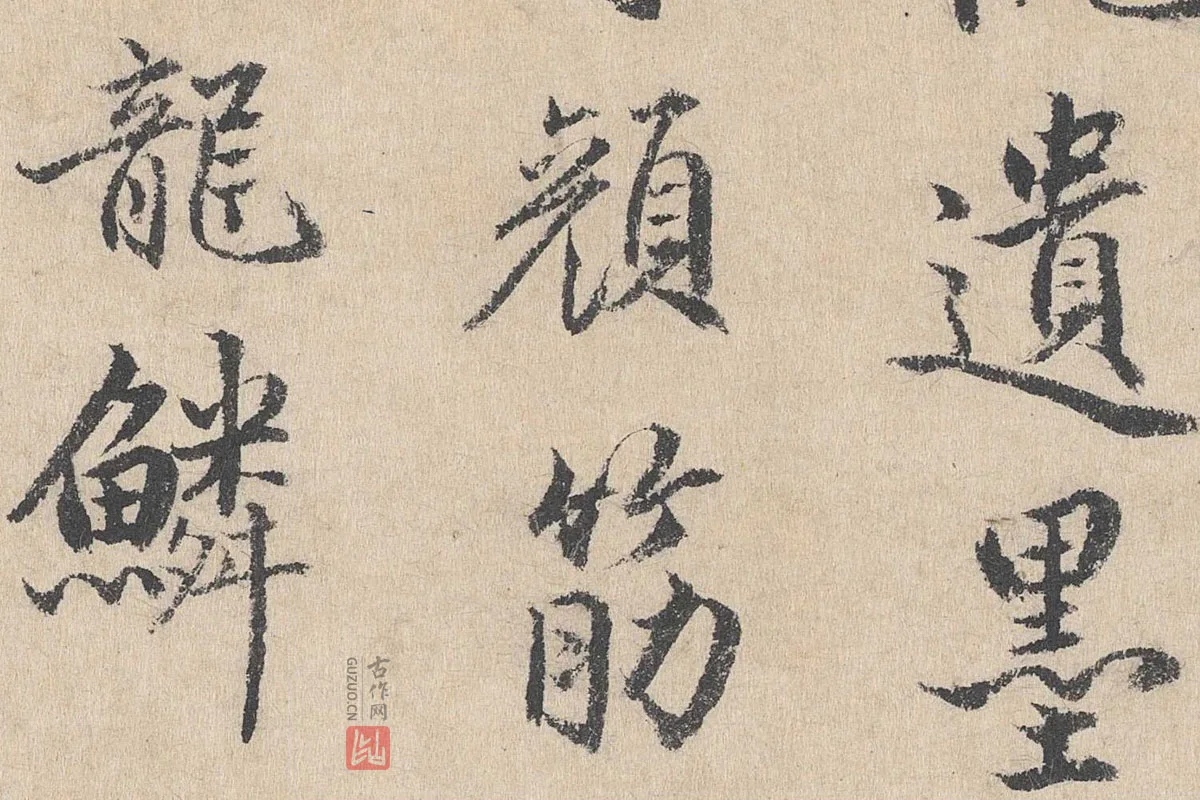 遺墨
顔筋
龍鱗
古作网
GUZUO.CN